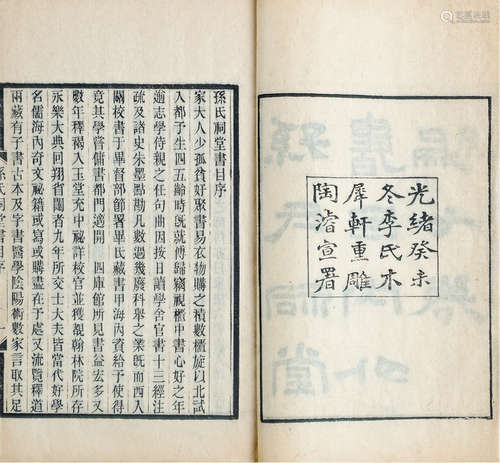 光緒癸未
冬李氏木
犀軒重雕
陶濬宣署
孫氏祠堂書目序
家大人少孤貧好聚書易衣物購之積數櫃旋以北試
入都予生四五齡時旣就傅歸竊視櫃中書心好之年
逾志學侍親之任句曲因按日讀學舍官書十三經注
疏及諸史朱墨點勘凡數過幾廢科舉之業旣而西入
關校書于畢督部節署畢氏藏書甲海內資給予使得
竟其學嘗傭書都門適開 四庫館所見書益宏多又
數年釋褐入玉堂充中祕詳校官並獲覩翰林院所存
永樂大典回翔省闥者九年所交士大夫皆當代好學
名儒海內奇文祕籍或寫或購盡在于處又流覽釋道
兩藏有子書古本及字書醫學陰陽術數家言取其足
孫氏祠堂書目序 一